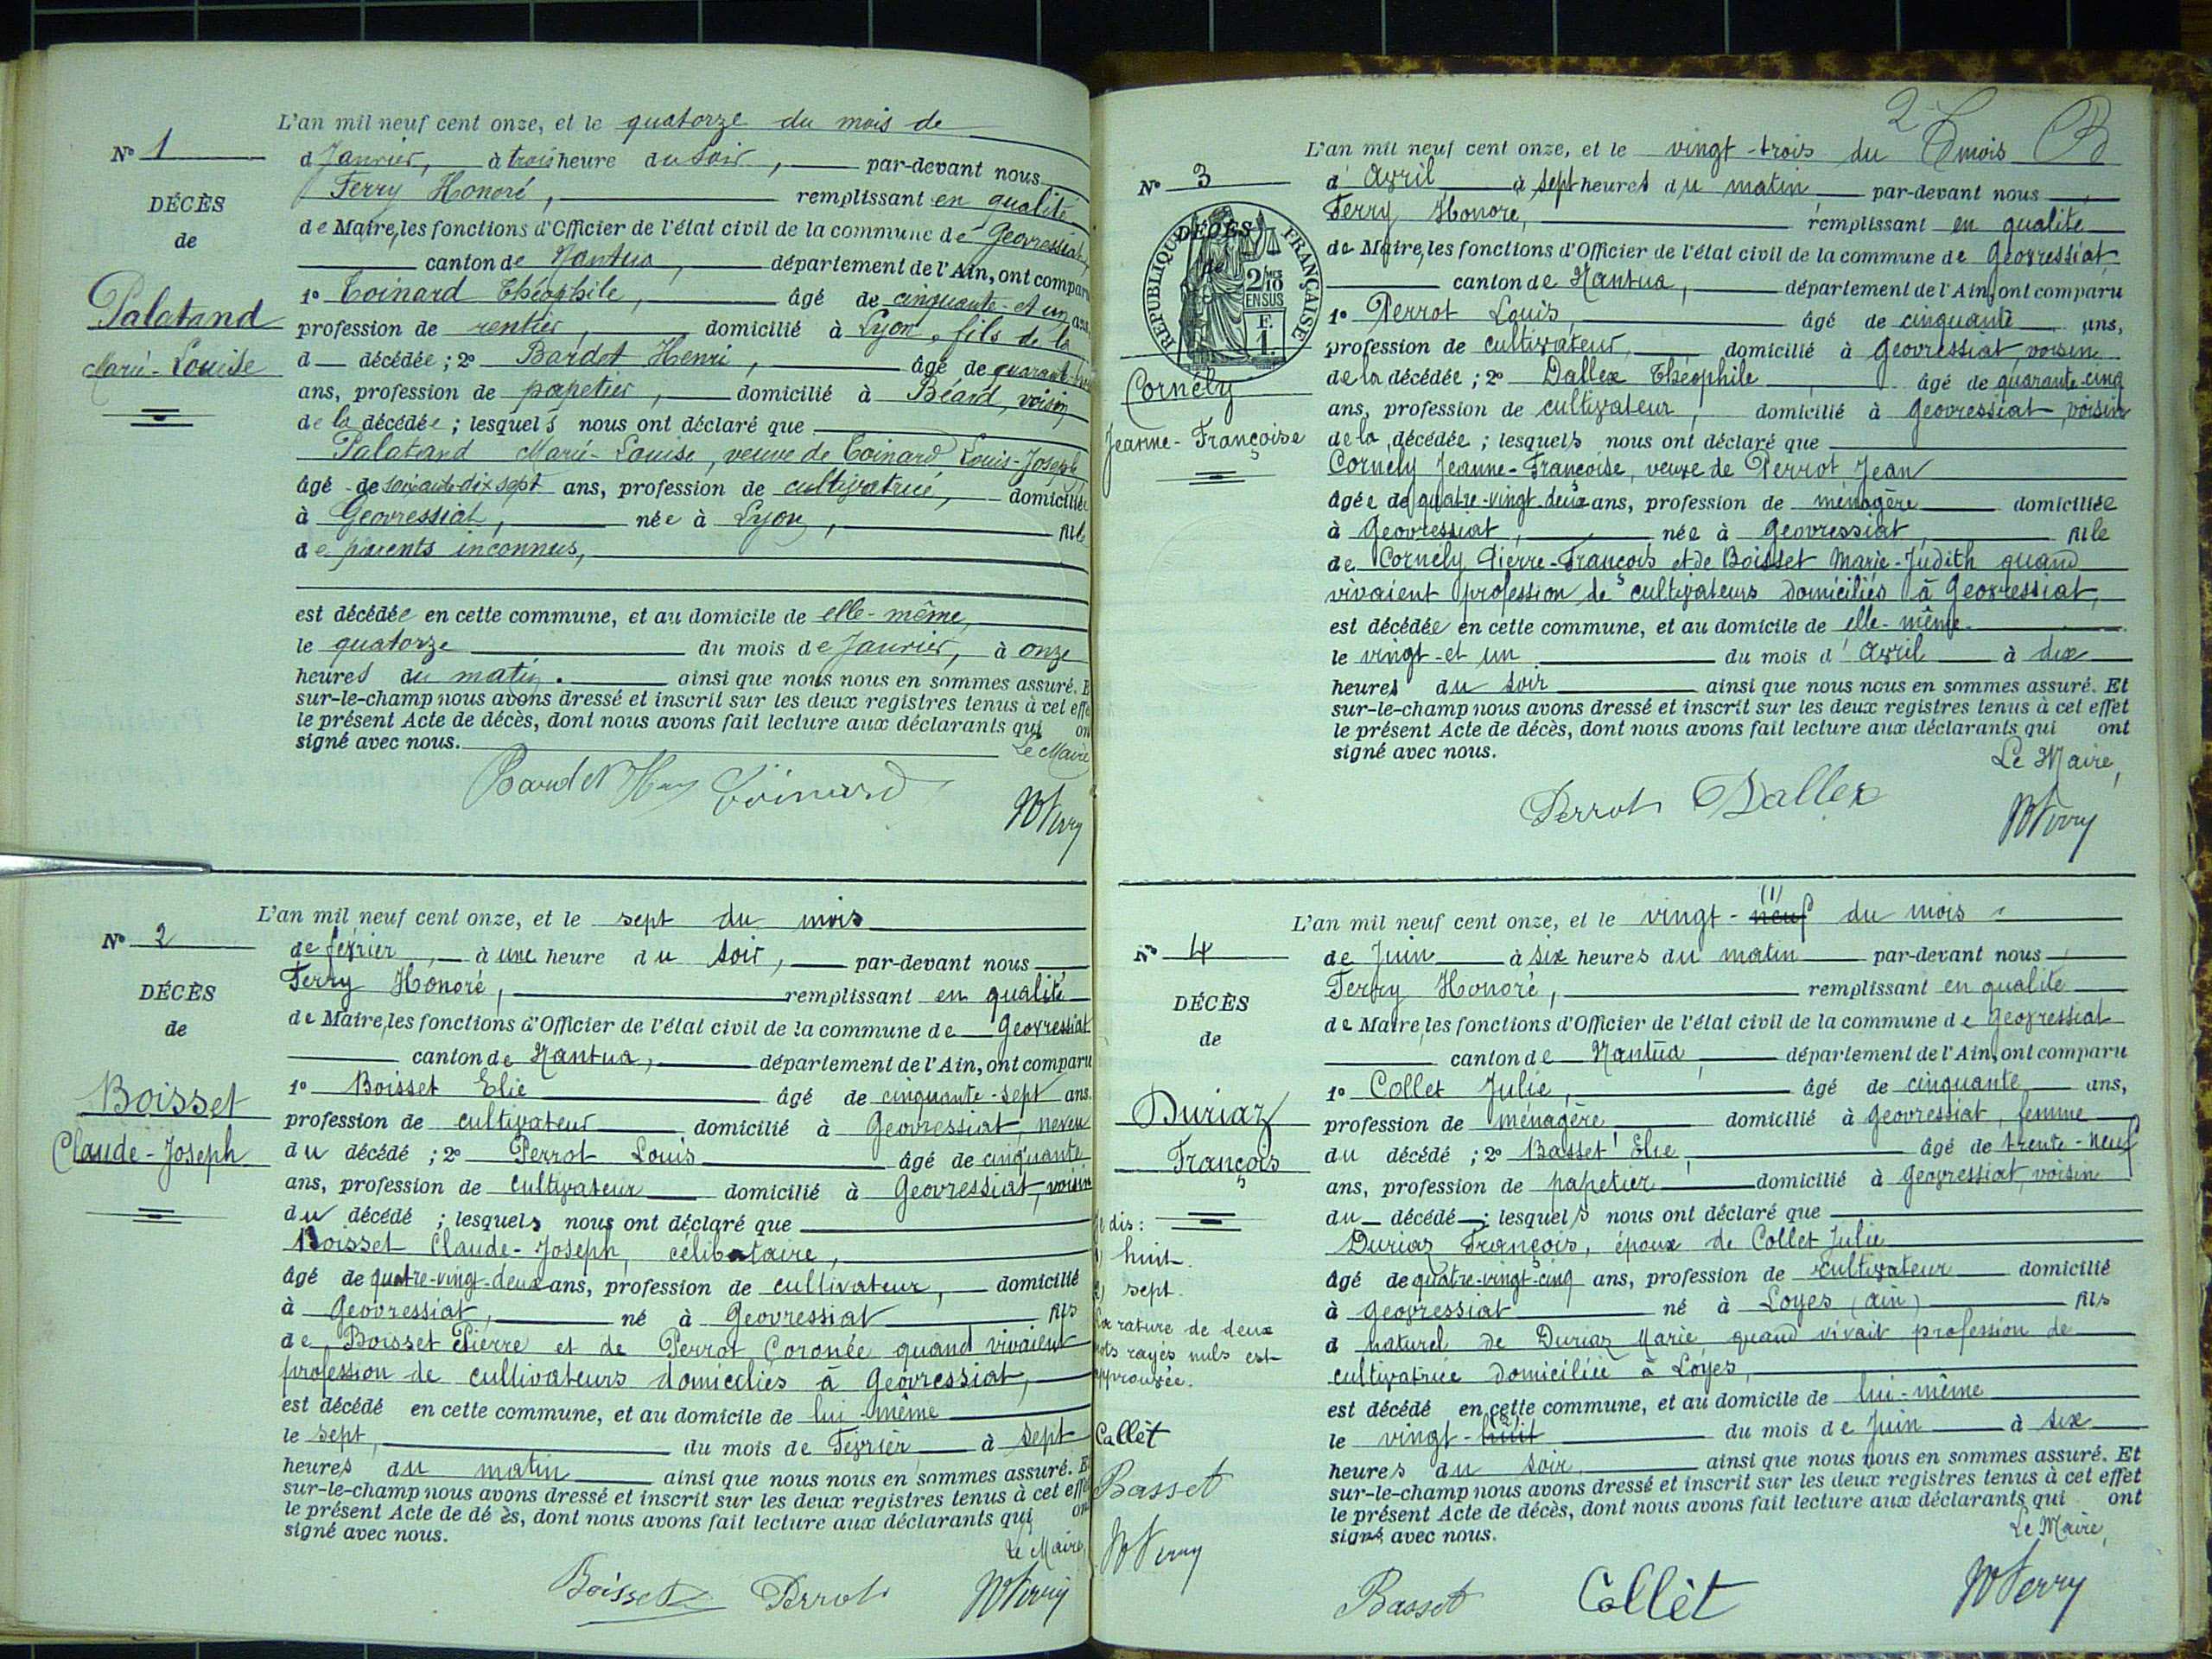 L'an mil neuf cent onze, et le quatorze du mois de
N° 1
d Janvier, à trois heure du soir, par-devant nous
Ferry Honoré, remplissant en qualité
DÉCÈS
de Maire, les fonctions d'Officier de l'état civil de la commune de Geovressiat,
de
canton de Nantua, département de l'Ain, ont comparu
1° Coinard Théophile, âgé de cinquante et un ans
Palatand
profession de rentier, domicilié à Lyon, fils de la
Marie-Louise
d décédée ; 2° Bardet Henri, âgé de
ans, profession de papetier, domicilié à Béard, voisin
de la décédée ; lesquels nous ont déclaré que
Palatand Marie-Louise, veuve de Coinard Louis-Joseph
âgé de soixante-dix sept ans, profession de cultivatrice, domiciliée
à Geovressiat, née à Lyon, fille
de parents inconnus,
est décédée en cette commune, et au domicile de elle-même,
le quatorze du mois de Janvier, à onze
heures du matin. ainsi que nous nous en sommes assuré. E
sur-le-champ nous avons dressé et inscrit sur les deux registres tenus à cet effe
le présent Acte de décès, dont nous avons fait lecture aux déclarants qui on
signé avec nous.
Le Maire
Bardet Coinard
Ferry
L'an mil neuf cent onze, et le sept du mois
N° 2
de février, à une heure du soir, par-devant nous
Ferry Honoré, remplissant en qualité
DÉCÈS
de Maire, les fonctions d'Officier de l'état civil de la commune de Geovressiat
de
canton de Nantua, département de l'Ain, ont comparu
1° Boisset Elie âgé de cinquante-sept ans.
Boisset
profession de cultivateur domicilié à Geovressiat, neveu
Claude-Joseph
du décédé ; 2° Perrot Louis âgé de cinquante
ans, profession de cultivateur domicilié à Geovressiat, voisin
du décédé ; lesquels nous ont déclaré que
Boisset Claude-Joseph, célibataire,
âgé de quatre-vingt-deux ans, profession de cultivateur, domicilié
à Geovressiat, né à Geovressiat fils
de Boisset Pierre et de Perrot Coronée quand vivaient
profession de cultivateurs domiciliés à Geovressiat,
est décédé en cette commune, et au domicile de lui-même
le sept, du mois de Février à sept
heures du matin ainsi que nous nous en sommes assuré. E
sur-le-champ nous avons dressé et inscrit sur les deux registres tenus à cet effe
le présent Acte de dé ès, dont nous avons fait lecture aux déclarants qui on
signé avec nous.
Le Maire,
Boisset Perrot Ferry
2
L'an mil neuf cent onze, et le vingt-trois du mois
N° 3
d' Avril à sept heures du matin par-devant nous
Ferry Honoré, remplissant en qualité
RÉPUBLIQUE FRANÇAISE
DÉCÈS
de
2/10
EN SUS
F.
1.
de Maire, les fonctions d'Officier de l'état civil de la commune de Geovressiat,
canton de Nantua, département de l'Ain, ont comparu
1° Perrot Louis, âgé de cinquante ans,
profession de cultivateur, domicilié à Geovressiat, voisin
Cornély
de la décédée ; 2° Dallex Théophile, âgé de quarante-cinq
ans, profession de cultivateur, domicilié à Geovressiat, voisin
Jeanne-Françoise
de la décédée ; lesquels nous ont déclaré que
Cornély Jeanne-Françoise, veuve de Perrot Jean
âgée de quatre-vingt-deux ans, profession de ménagère domiciliée
à Geovressiat, née à Geovressiat, fille
de Cornély Pierre-François et de Boisset Marie-Judith quand
vivaient profession de cultivateurs domiciliés à Geovressiat,
est décédée en cette commune, et au domicile de elle-même
le vingt-et un du mois d' Avril à dix
heures du soir ainsi que nous nous en sommes assuré. Et
sur-le-champ nous avons dressé et inscrit sur les deux registres tenus à cet effet
le présent Acte de décès, dont nous avons fait lecture aux déclarants qui ont
signé avec nous.
Le Maire,
Perrot Dallex
Ferry
(1)
L'an mil neuf cent onze, et le vingt-neuf du mois
N° 4
de Juin à six heures du matin par-devant nous
Ferry Honoré, remplissant en qualité
DÉCÈS
de Maire, les fonctions d'Officier de l'état civil de la commune de Geovressiat
de
canton de Nantua, département de l'Ain, ont comparu
1° Collet Julie, âgé de cinquante ans,
Duriaz
profession de ménagère domicilié à Geovressiat, femme
François
du décédé ; 2° Basset Elie, âgé de trente-neuf
ans, profession de papetier domicilié à Geovressiat, voisin
du décédé ; lesquels nous ont déclaré que
Duriaz François, époux de Collet Julie
âgé de quatre-vingt-cinq ans, profession de cultivateur domicilié
à Geovressiat né à Loyes (Ain) fils
d naturel de Duriaz Marie quand vivait profession de
cultivatrice domiciliée à Loyes,
est décédé en cette commune, et au domicile de lui-même
(2)
le vingt-huit du mois de Juin à six
heures du soir, ainsi que nous nous en sommes assuré. Et
sur-le-champ nous avons dressé et inscrit sur les deux registres tenus à cet effet
le présent Acte de décès, dont nous avons fait lecture aux déclarants qui ont
signé avec nous.
Le Maire,
Basset Collèt Ferry
dis:
huit.
) sept.
la rature de deux
mots rayés nuls est
approuvée.
Collèt
Basset
Ferry